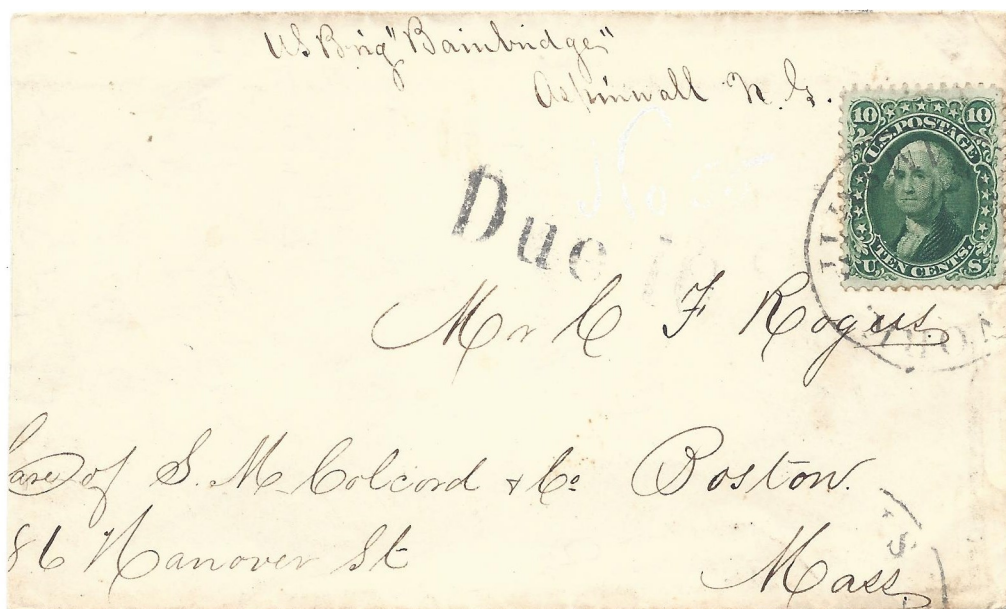 US Brig "Bainbridge"
Aspinwall N. G.
10 10
U.S. POSTAGE
TEN CENTS.
U. S.
Due
Mr C F Rogers
Care of S. M Colcord & Co Boston.
86 Hanover St
Mass